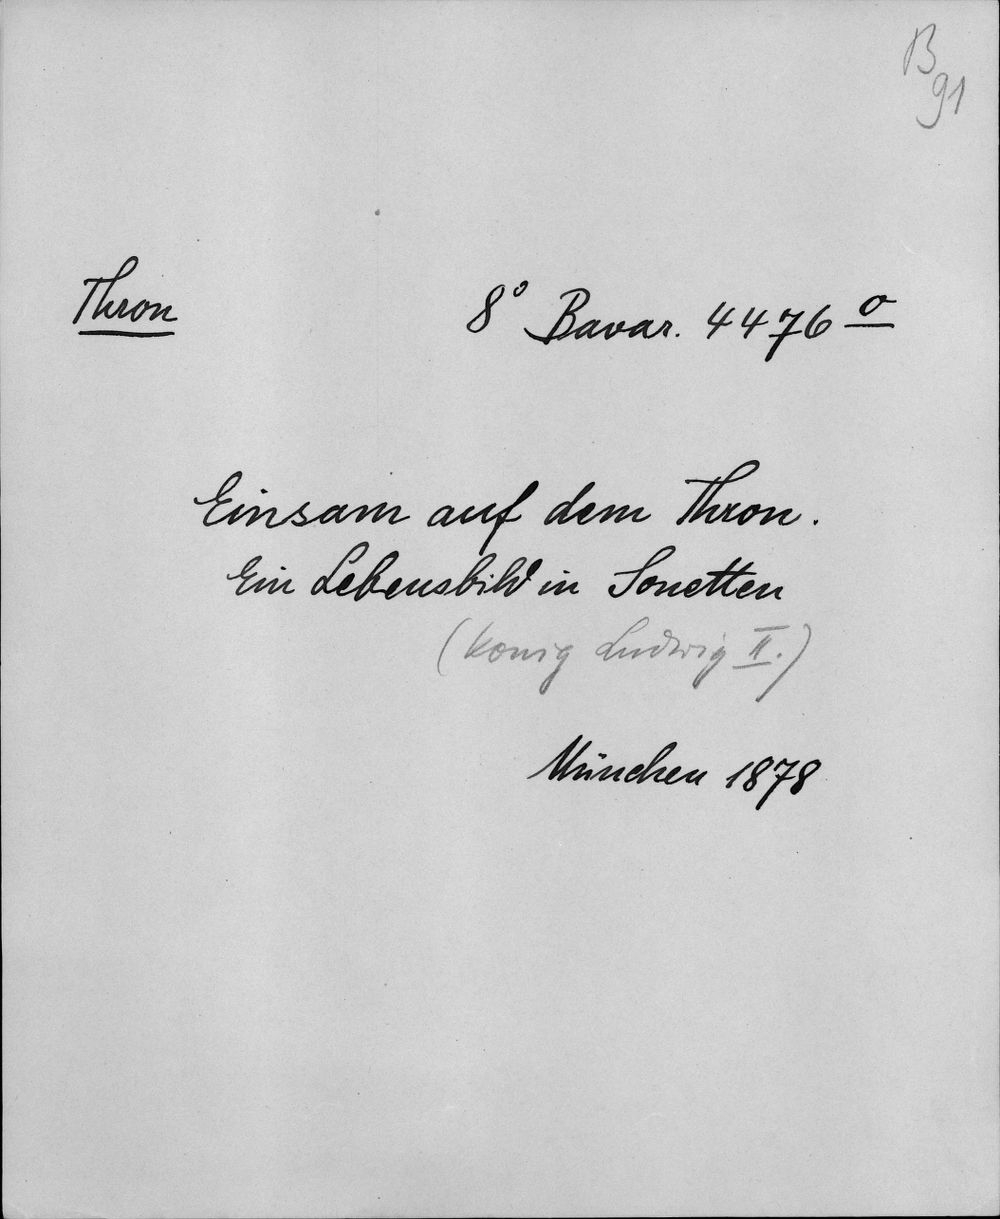 B
91
Thron 8° Bavar. 4476 o
Einsam auf dem Thron.
Ein Lebensbild in Sonetten
(König Ludwig II.)
München 1878